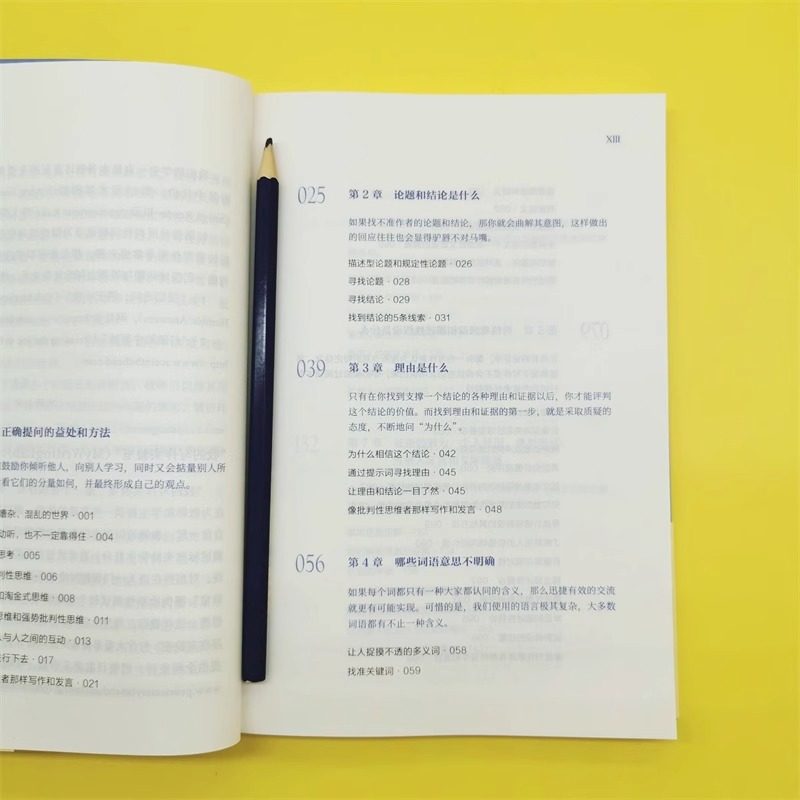 正确提问的益处和方法
鼓励你倾听他人，向别人学习，同时又会掂量别人所
看它们的分量如何，并最终形成自己的观点。
嘈杂、混乱的世界·001
动听，也不一定靠得住·004
思考·005
判性思维·006
和淘金式思维·008
思维和强势批判性思维·011
人与人之间的互动·013
进行下去·017
者那样写作和发言·021
XIII
025 第2章 论题和结论是什么
如果找不准作者的论题和结论，那你就会曲解其意图，这样做出
的回应往往也会显得驴唇不对马嘴。
描述型论题和规定性论题·026
寻找论题·028
寻找结论·029
找到结论的5条线索·031
039 第3章 理由是什么
只有在你找到支撑一个结论的各种理由和证据以后，你才能评判
这个结论的价值。而找到理由和证据的第一步，就是采取质疑的
态度，不断地问“为什么”。
为什么相信这个结论·042
通过提示词寻找理由·045
让理由和结论一目了然·045
像批判性思维者那样写作和发言·048
056 第4章 哪些词语意思不明确
如果每个词都只有一种大家都认同的含义，那么迅捷有效的交流
就更有可能实现。可惜的是，我们使用的语言极其复杂，大多数
词语都有不止一种含义。
让人捉摸不透的多义词·058
找准关键词·059